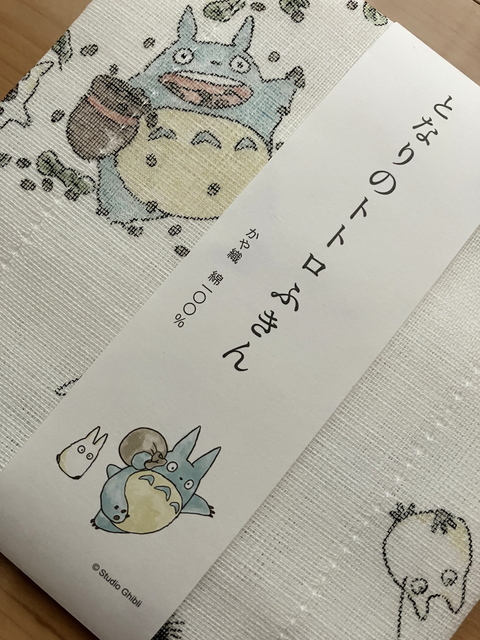 となりのトトロふきん
かや織 綿一〇〇%
© Studio Ghibli